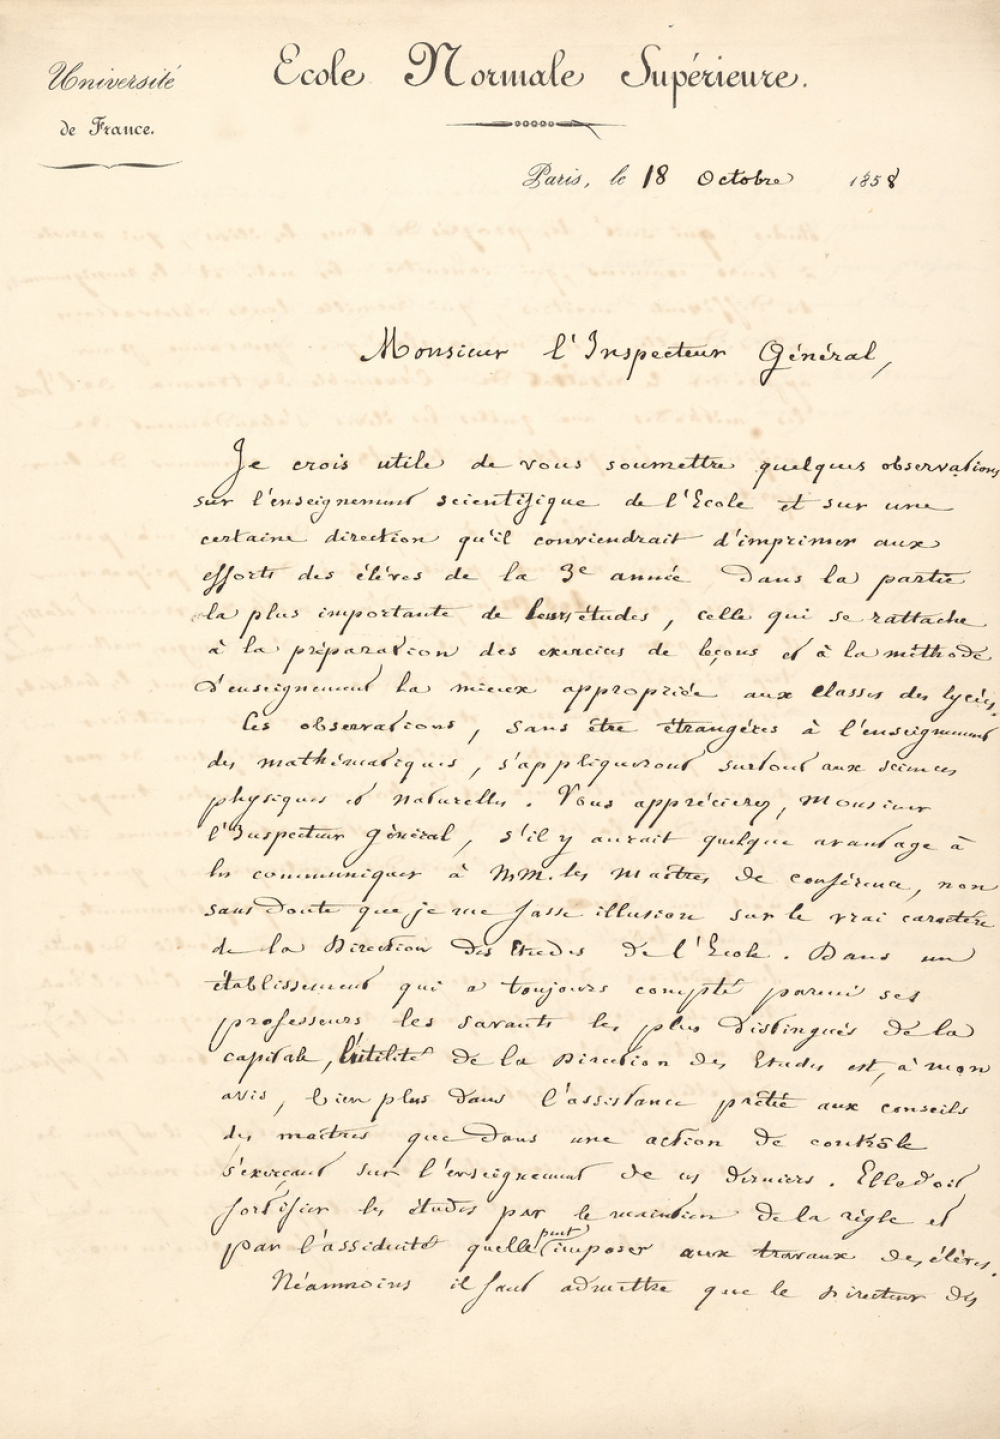 Université
de France.
Ecole Normale Supérieure.
Paris, le 18 Octobre 1858
Monsieur l'Inspecteur Général,
Je crois utile de vous soumettre quelques observations
sur l'enseignement scientifique de l'Ecole et sur une
certaine direction qu'il conviendrait d'imprimer aux
efforts des élèves de la 3e année dans la partie
la plus importante de leurs études, celle qui se rattache
à la préparation des exercices de leçons et à la méthode
d'enseignement la mieux appropriée aux classes des lycées.
Ces observations, sans être étrangères à l'enseignement
des mathématiques, s'appliqueront surtout aux sciences
physiques et naturelles. Vous apprécierez, Monsieur
l'Inspecteur Général, s'il y aurait quelque avantage à
les communiquer à MM. les maîtres de conférence, non
sans doute que je me fasse illusion sur le vrai caractère
de la Direction des Etudes de l'Ecole. Dans un
établissement qui a toujours compté parmi ses
professeurs les savants les plus distingués de la
capitale, l'utilité de la Direction des Etudes est, à mon
avis, bien plus dans l'assistance prêtée aux conseils
des maîtres que dans une action de contrôle
s'exerçant sur l'enseignement de ces derniers. Elle doit
fortifier les études par le maintien de la règle et
par l'assiduité qu'elle peut imposer aux travaux des élèves.
Néanmoins il faut admettre que le Directeur des